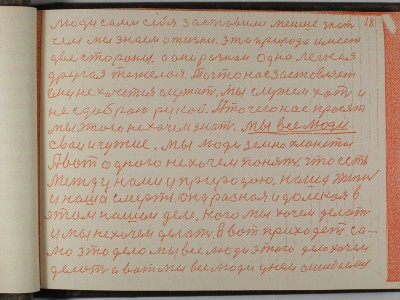 люди сами себя заставили меньше знат 18
чем мы знаем о жизни. эта природа имеет
две стороны, а они разная одна легкая
другая тяжелая. То что нас заставляет
ему не хочется служит. мы служем хотя и
не с доброю рукой. А то чего нас просят
мы этого не хочем знат. мы все люди
сваи чужие. мы люди земно планеты
А вот одного не хочем понять, что есть
Между нами и природою, наша жизнь
и наша смерть. она разная и далекая в
этом нашем деле, кого мы хочем делать
и мы нехочем делать. А вот приходет са-
мо это дело мы все люди этого дела хочем
делать а вот мы все люди у нем ошибаемы